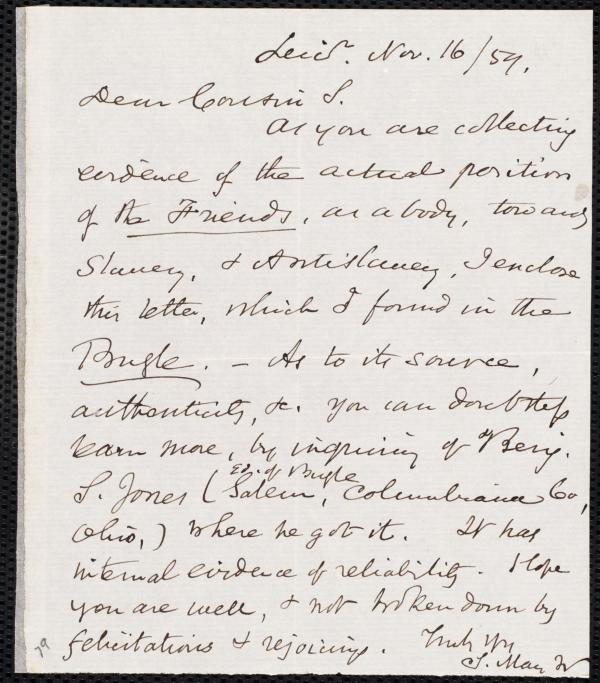 Leicr. Nov. 16/59.
Dear Cousin S.
As you are collecting
evidence of the actual position
of the Friends, as a body, towards
Slavery, & Antislavery, I enclose
this letter, which I found in the
Bugle. – As to its source,
authenticity, &c. you can doubtless
learn more, by inquiring of Benj.
Ed. of Bugle
S. Jones (Salem, Columbiana Co,
Ohio,) where he got it. It has
internal evidence of reliability. Hope
you are well, & not broken down by
felicitations & rejoicings. Truly Yrs
S. May Jr
79